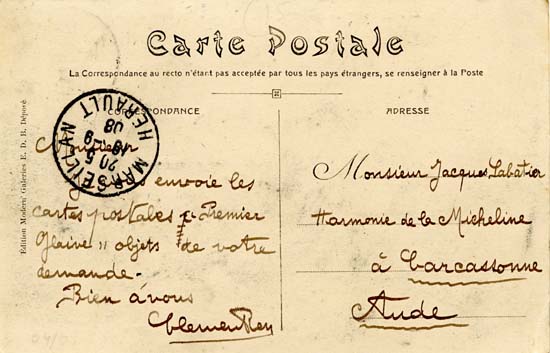 Carte Postale
La Correspondance au recto n'étant pas acceptée par tous les pays étrangers, se renseigner à la Poste
CORRESPONDANCE
Monsieur
Je vous envoie les
cartes postales Premier
Glaive" objets de votre
demande.
Bien à vous
Clément Rey
ADRESSE
Monsieur Jacques Labatier
Harmonie de la Micheline
à Carcassonne
Aude
MARSEILLAN
20 5
18-9
08
HERAULT
Edition Modern' Galeries E. D. B. Déposé